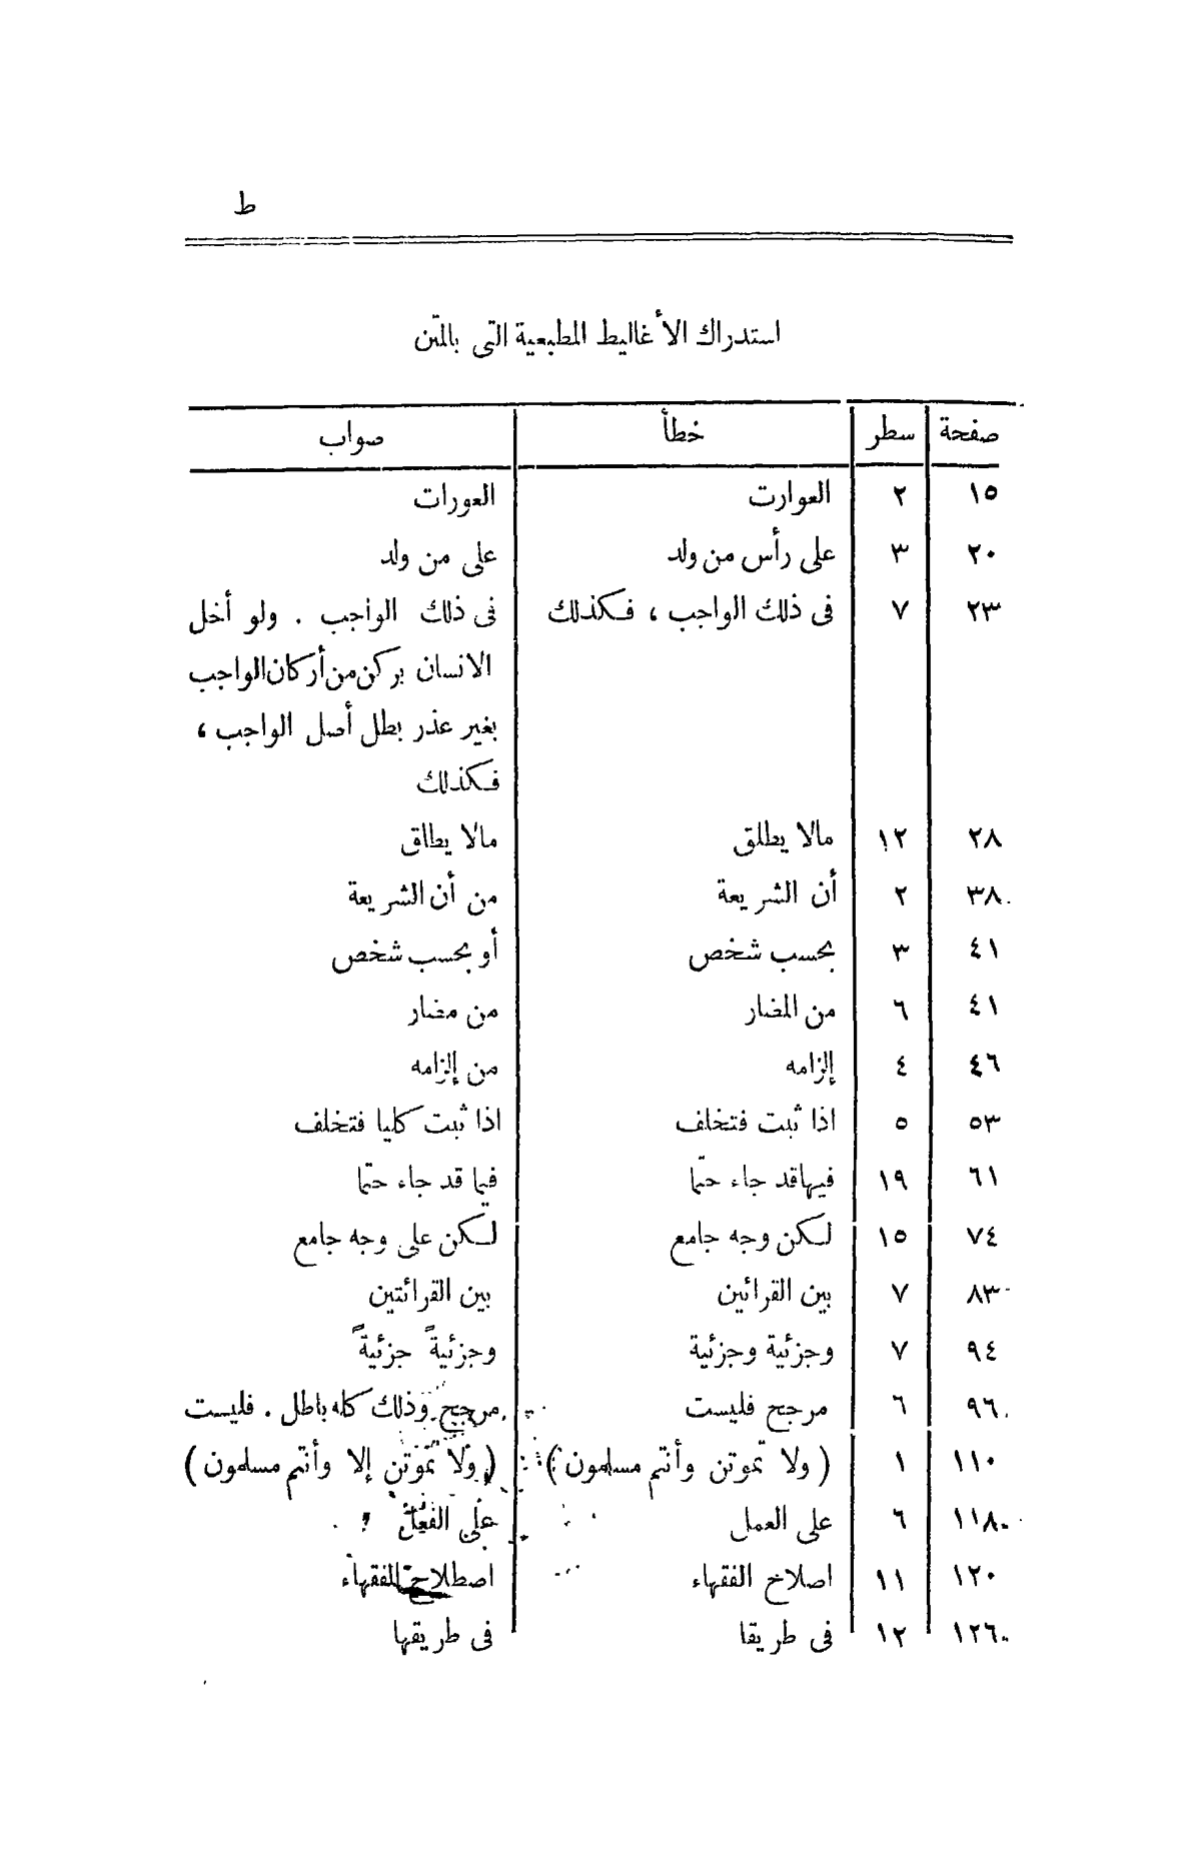 ط
استدراك الأغاليط المطبعية التى بالمتن
صفحة سطر خطأ صواب
١٥ ٢ العوارت العورات
٢٠ ٣ على رأس من ولد على من ولد
٢٣ ٧ فى ذلك الواجب ، فكذلك فى ذلك الواجب . ولو أخل
الانسان بركن من أركان الواجب
بغير عذر بطل أصل الواجب ،
فكذلك
٢٨ ١٢ مالا يطلق مالا يطاق
٣٨ ٢ أن الشريعة من أن الشريعة
٤١ ٣ بحسب شخص أو بحسب شخص
٤١ ٦ من المضار من مضار
٤٦ ٤ إلزامه من إلزامه
٥٣ ٥ اذا ثبت فتخلف اذا ثبت كليا فتخلف
٦١ ١٩ فيهاقد جاء حتما فيما قد جاء حتما
٧٤ ١٥ لكن وجه جامع لكن على وجه جامع
٨٣ ٧ بين القرائين بين القرائتين
٩٤ ٧ وجزئية وجزئية وجزئيةً جزئيةً
٩٦ ٦ مرجح فليست مرجح وذلك كله باطل . فليست
١١٠ ١ ( ولا تموتن وأنتم مسلمون ) ( ولا تموتن إلا وأنتم مسلمون )
١١٨ ٦ على العمل على الفعل
١٢٠ ١١ اصلاح الفقهاء اصطلاح الفقهاء
١٢٦ ١٢ فى طريقا فى طريقها